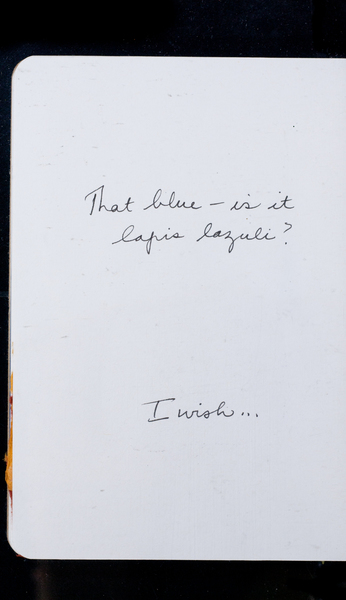 That blue – is it
lapis lazuli?
I wish...